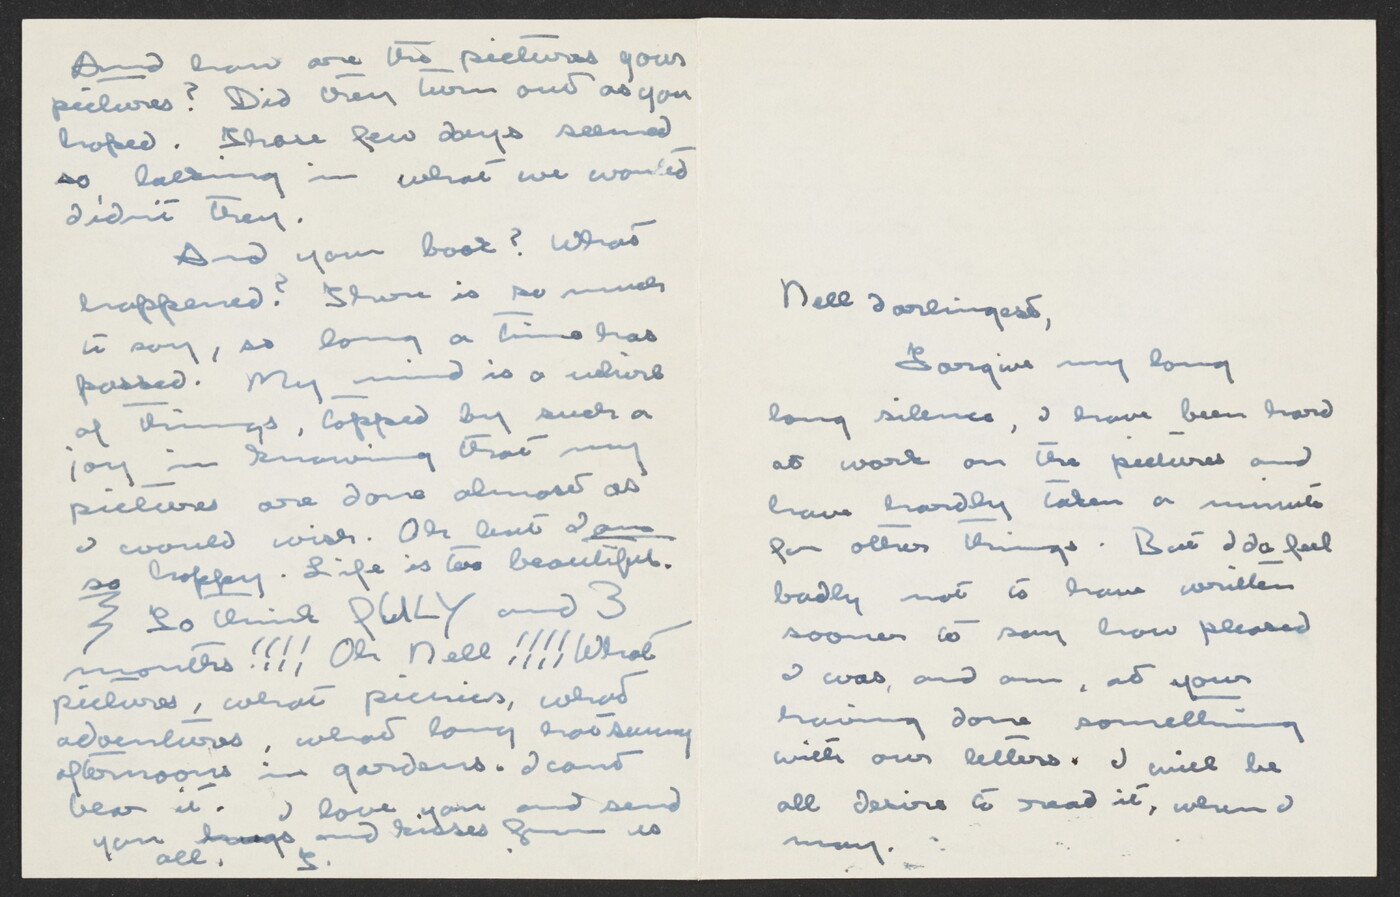 Nell darlingest,
Forgive my long
long silence, I have been hard
at work on the pictures and
have hardly taken a minute
for other things. But I do feel
badly not to have written
sooner to say how pleased
I was, and am, at your
having done something
with our letters. I will be
all desire to read it, when I
may.
And how are the pictures your
pictures? Did they turn out as you
hoped. Those few days seemed
so lacking in what we wanted
didn't they.
And your book? What
happened? There is so much
to say, so long a time has
passed. My mind is a whirl
of things, topped by such a
joy in knowing that my
pictures are done almost as
I would wish. Oh but I am
so happy. Life is too beautiful.
To think JULY and 3
months!!!! Oh Nell!!!! What
pictures, what picnics, what
adventures, what long hot sunny
afternoons in gardens. I cant
bear it. I love you and send
you hugs and kisses from us
all. T.